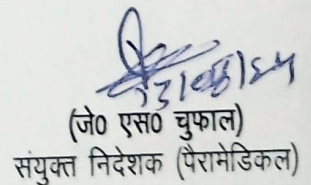 (जे० एस० चुफाल)
संयुक्त निदेशक (पैरामेडिकल)